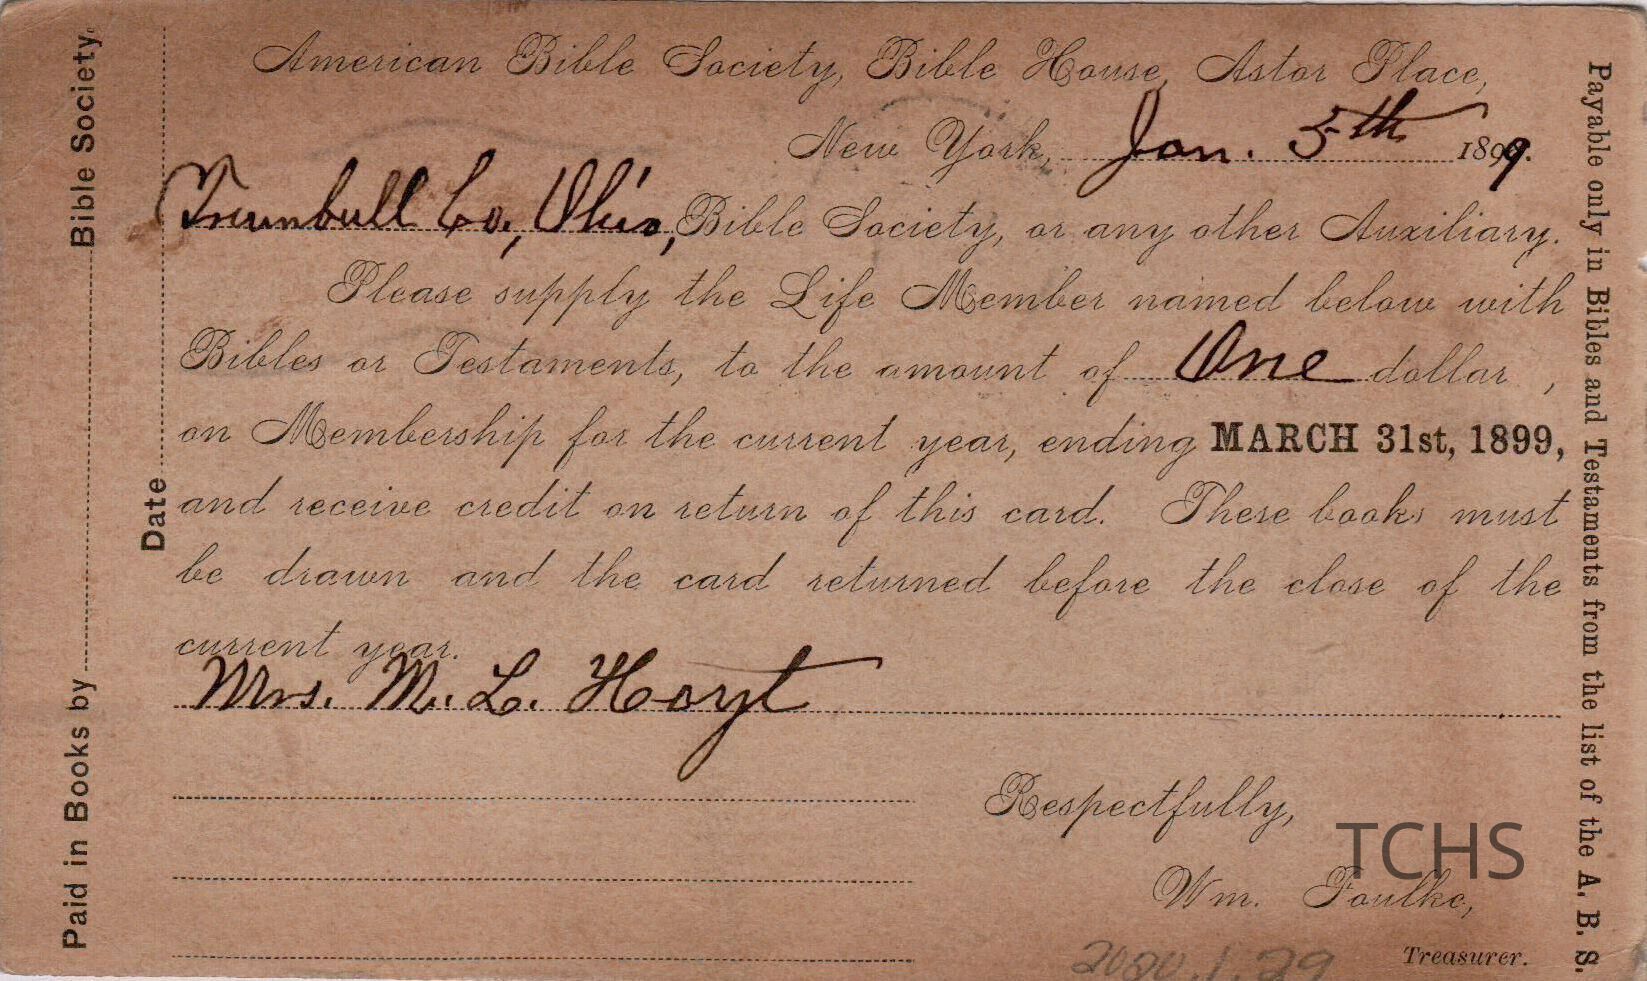 American Bible Society, Bible House, Astor Place,
New York, Jan. 5th 1899.
Trumbull Co., Ohio, Bible Society, or any other Auxiliary.
Please supply the Life Member named below with
Bibles or Testaments, to the amount of One dollar ,
on Membership for the current year, ending MARCH 31st, 1899,
and receive credit on return of this card. These books must
be drawn and the card returned before the close of the
current year.
Mrs. M. L. Hoyt
Respectfully,
Wm. Foulke,
Treasurer.
Paid in Books by Bible Society.
Date
Payable only in Bibles and Testaments from the list of the A. B. S.
TCHS
2020.1.29